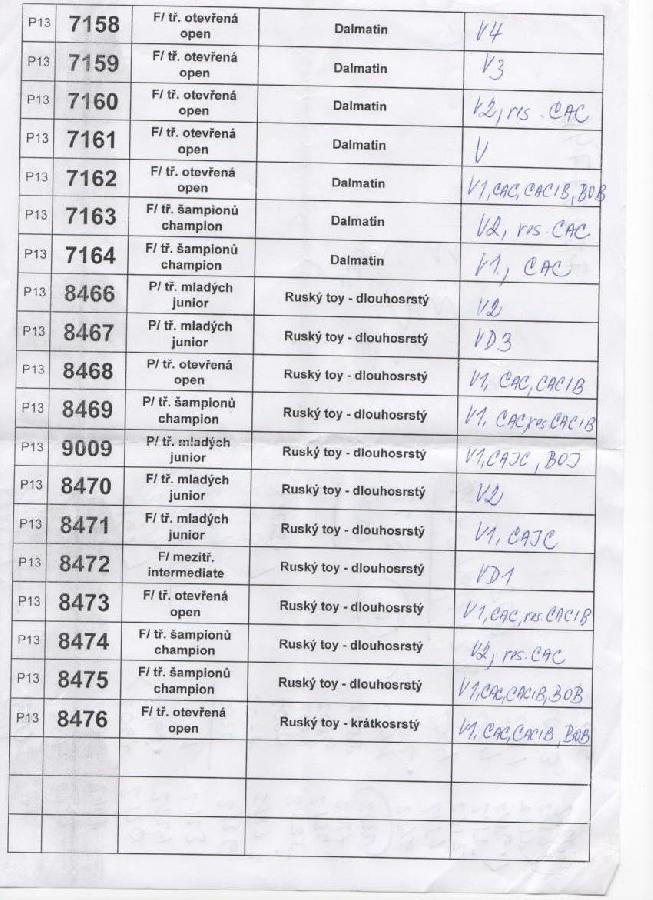 P13 7158 F/ tř. otevřená open Dalmatin V4
P13 7159 F/ tř. otevřená open Dalmatin V3
P13 7160 F/ tř. otevřená open Dalmatin V2, res. CAC
P13 7161 F/ tř. otevřená open Dalmatin V
P13 7162 F/ tř. otevřená open Dalmatin V1, CAC, CACIB, BOB
P13 7163 F/ tř. šampionů champion Dalmatin V2, res. CAC
P13 7164 F/ tř. šampionů champion Dalmatin V1, CAC
P13 8466 P/ tř. mladých junior Ruský toy - dlouhosrstý V2
P13 8467 P/ tř. mladých junior Ruský toy - dlouhosrstý VD3
P13 8468 P/ tř. otevřená open Ruský toy - dlouhosrstý V1, CAC, CACIB
P13 8469 P/ tř. šampionů champion Ruský toy - dlouhosrstý V1, CAC, res. CACIB
P13 9009 P/ tř. mladých junior Ruský toy - dlouhosrstý V1, CAJC, BOJ
P13 8470 F/ tř. mladých junior Ruský toy - dlouhosrstý V2
P13 8471 F/ tř. mladých junior Ruský toy - dlouhosrstý V1, CAJC
P13 8472 F/ mezitř. intermediate Ruský toy - dlouhosrstý VD1
P13 8473 F/ tř. otevřená open Ruský toy - dlouhosrstý V1, CAC, res. CACIB
P13 8474 F/ tř. šampionů champion Ruský toy - dlouhosrstý V2, res. CAC
P13 8475 F/ tř. šampionů champion Ruský toy - dlouhosrstý V1, CAC, CACIB, BOB
P13 8476 F/ tř. otevřená open Ruský toy - krátkosrstý V1, CAC, CACIB, BOB